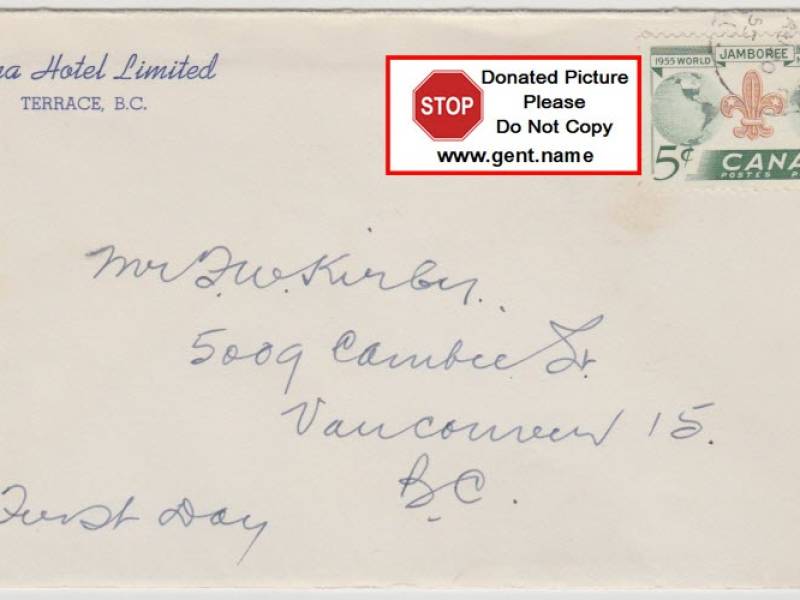 Hotel Limited
TERRACE, B.C.
STOP
Donated Picture
Please
Do Not Copy
www.gent.name
1955 WORLD JAMBOREE
5¢ CANA
POSTES
Mr F.W. Kirby.
5009 Cambie St.
Vancouver 15.
B.C.
First Day